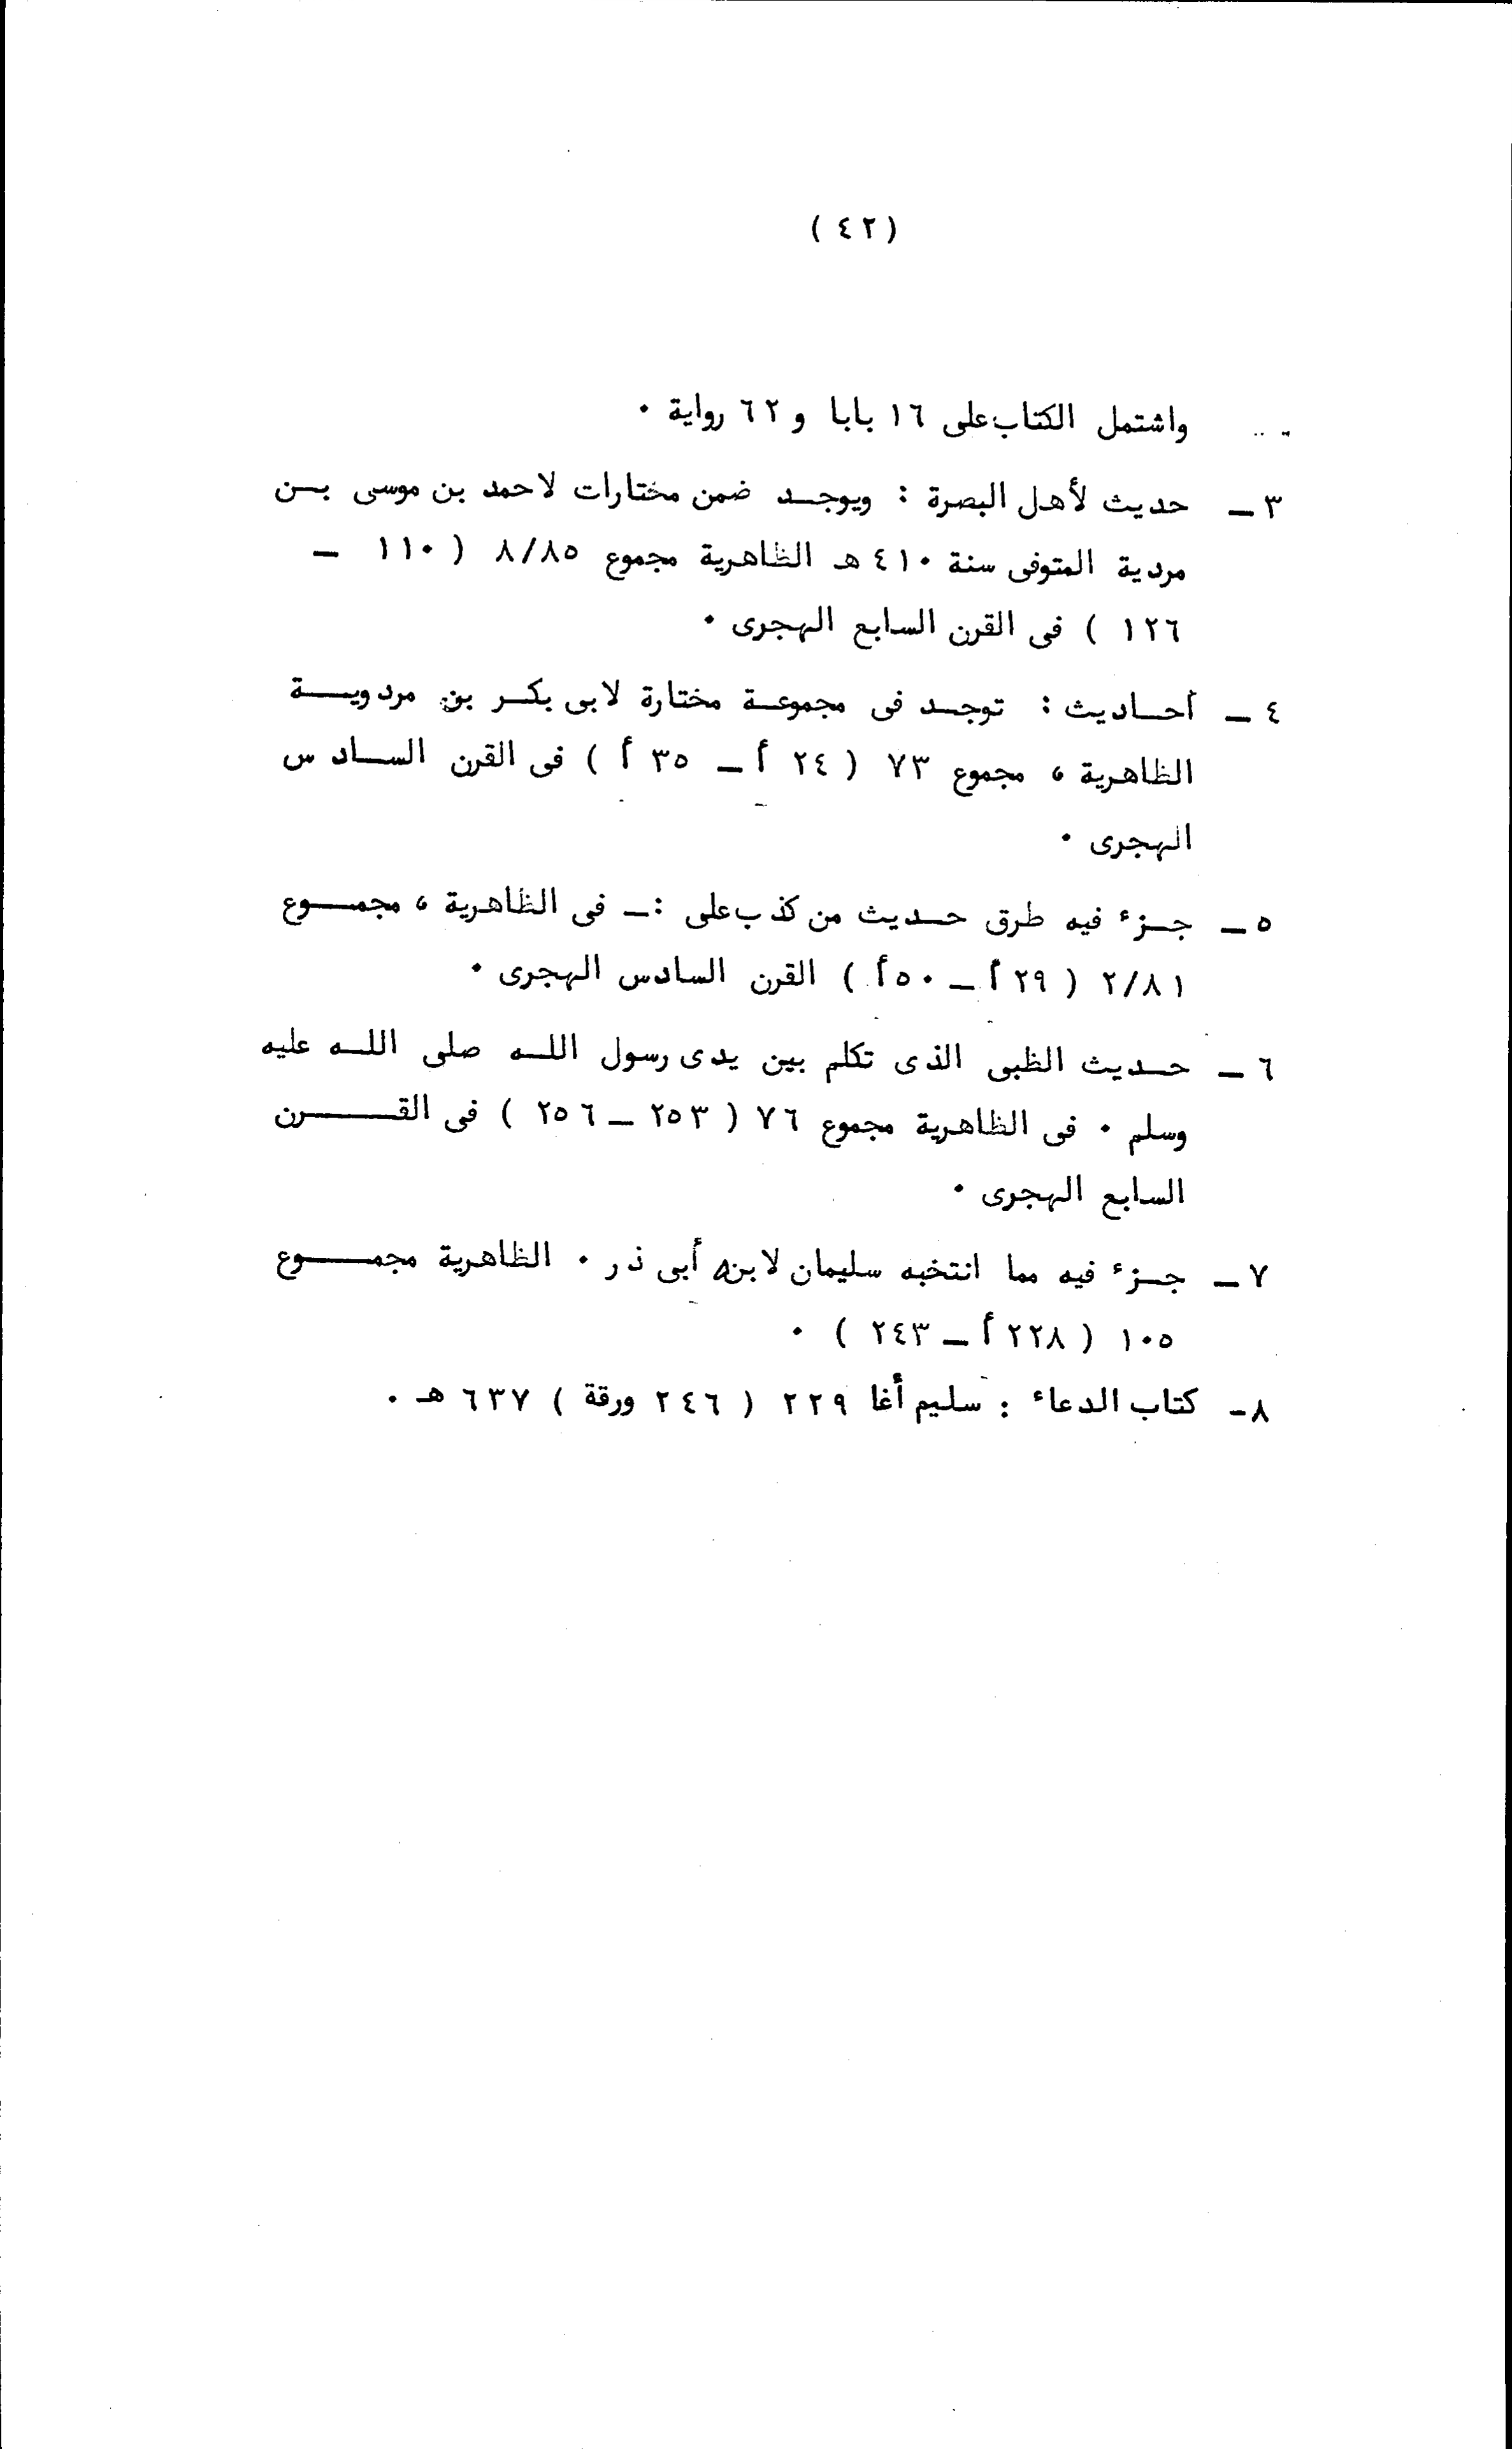 ( ٤٢ )
واشتمل الكتاب على ١٦ بابا و ٦٢ رواية ٠
٣ ـ حديث لأهل البصرة : ويوجـد ضمن مختارات لاحمد بن موسى بـن
مردية المتوفى سنة ٤١٠ هـ الظاهرية مجموع ٨/٨٥ ( ١١٠ ـ
١٢٦ ) فى القرن السابع الهجرى ٠
٤ ـ أحـاديث : توجـد فى مجموعـة مختارة لابى بكـر بن مردويـــة
الظاهرية ، مجموع ٧٣ ( ٢٤ أ ـ ٣٥ أ ) فى القرن السـادس
الهجرى ٠
٥ ـ جـزء فيه طرق حـديث من كذب على :ـ فى الظاهرية ، مجمــوع
٢/٨١ ( ٢٩ أ ـ ٥٠ أ ) القرن السادس الهجرى ٠
٦ ـ حـديث الظبى الذى تكلم بين يدى رسول اللـه صلى اللـه عليه
وسلم ٠ فى الظاهرية مجموع ٧٦ ( ٢٥٣ ـ ٢٥٦ ) فى القـــــرن
السابع الهجرى ٠
٧ ـ جـزء فيه مما انتخبه سليمان لابنه أبى ذر ٠ الظاهرية مجمـــوع
١٠٥ ( ٢٢٨ أ ـ ٢٤٣ ) ٠
٨ـ كتاب الدعاء : سليم أغا ٢٢٩ ( ٢٤٦ ورقة ) ٦٣٧ هـ ٠